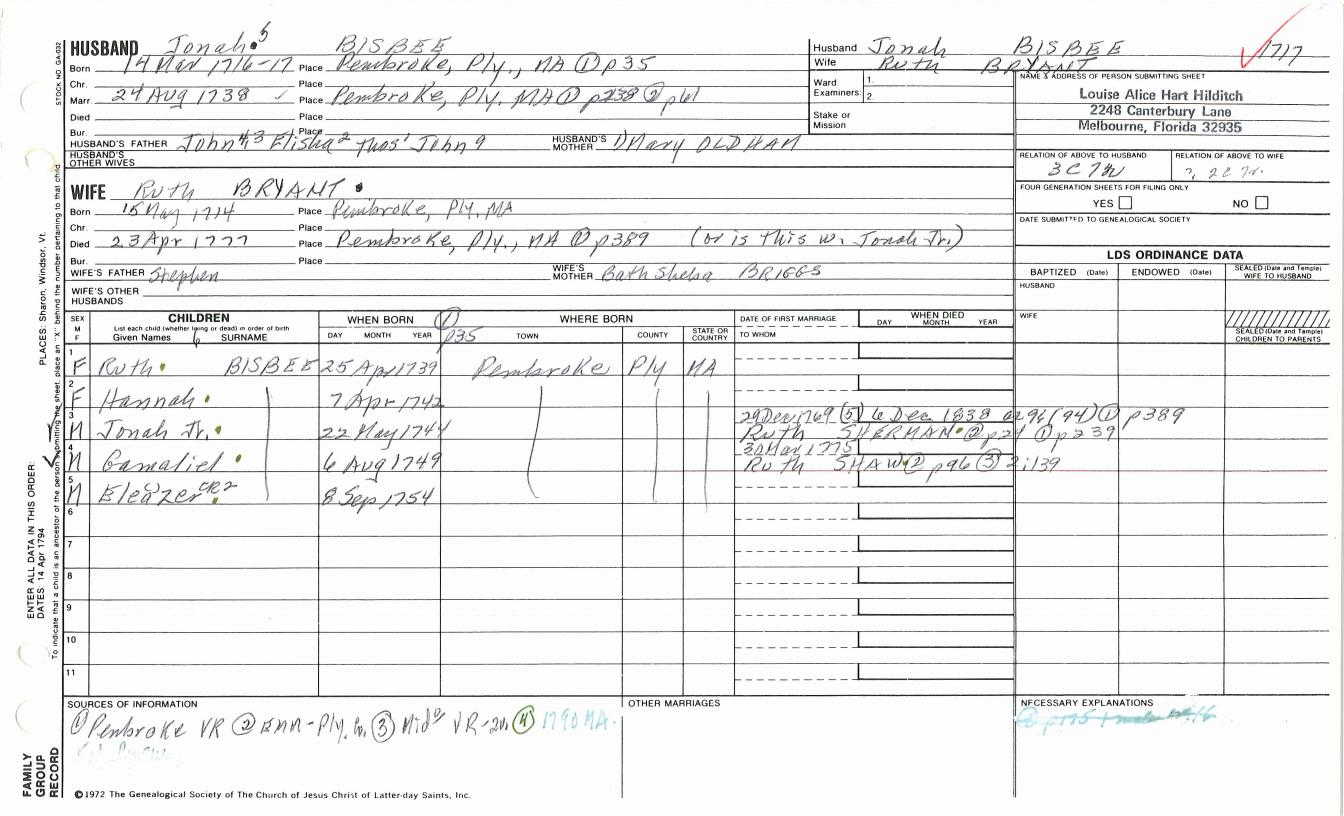 HUSBAND Jonah 5 BISBEE
Born 14 Mar 1716-17 Place Pembroke, Ply., MA ① p35
Chr. Place
Marr 24 Aug 1738 Place Pembroke, Ply. MA ① p238 ② p61
Died Place
Bur. Place
HUSBAND'S FATHER John 4,3 Elisha 2 Thos' John 9 HUSBAND'S MOTHER Mary OLDHAM
HUSBAND'S OTHER WIVES
Husband Jonah BISBEE 1717
Wife Ruth BRYANT
Ward 1.
Examiners: 2.
Stake or Mission
NAME & ADDRESS OF PERSON SUBMITTING SHEET
Louise Alice Hart Hilditch
2248 Canterbury Lane
Melbourne, Florida 32935
RELATION OF ABOVE TO HUSBAND RELATION OF ABOVE TO WIFE
3C7R 2C7R
FOUR GENERATION SHEETS FOR FILING ONLY
YES NO
DATE SUBMITTED TO GENEALOGICAL SOCIETY
WIFE Ruth BRYANT
Born 15 May 1714 Place Pembroke, Ply. MA
Chr. Place
Died 23 Apr 1777 Place Pembroke, Ply., MA ① p389 (or is this w. Jonah Jr.)
Bur. Place
WIFE'S FATHER Stephen WIFE'S MOTHER Bath Sheba BRIGGS
WIFE'S OTHER HUSBANDS
LDS ORDINANCE DATA
BAPTIZED (Date) ENDOWED (Date) SEALED (Date and Temple) WIFE TO HUSBAND
HUSBAND
WIFE
SEALED (Date and Temple) CHILDREN TO PARENTS
SEX M F
CHILDREN
List each child (whether living or dead) in order of birth
Given Names SURNAME
WHEN BORN ①
DAY MONTH YEAR p35
WHERE BORN
TOWN COUNTY STATE OR COUNTRY
DATE OF FIRST MARRIAGE
TO WHOM
WHEN DIED
DAY MONTH YEAR
1 F Ruth BISBEE 25 Apr 1739 Pembroke Ply MA
2 F Hannah 7 Apr 1742
3 M Jonah Jr. 22 May 1744 29 Dec 1769 (5) 6 Dec 1838 ae 96 (94) ① p389
Ruth SHERMAN ② p24 ① p239
4 M Gamaliel 6 Aug 1749 30 Mar 1775
Ruth SHAW ② p96 ③ 2:139
5 M Eleazer CR2 8 Sep 1754
6
7
8
9
10
11
SOURCES OF INFORMATION
① Pembroke VR ② EMM-Ply. Co. ③ Mid° VR-2v. ④ 1790 MA.
OTHER MARRIAGES
NECESSARY EXPLANATIONS
©1972 The Genealogical Society of The Church of Jesus Christ of Latter-day Saints, Inc.
STOCK NO GA-032
PLACES: Sharon, Windsor, Vt.
ENTER ALL DATA IN THIS ORDER:
DATES: 14 Apr 1794
To indicate that a child is an ancestor of the person submitting the sheet, place an "X" behind the number pertaining to that child
FAMILY GROUP RECORD